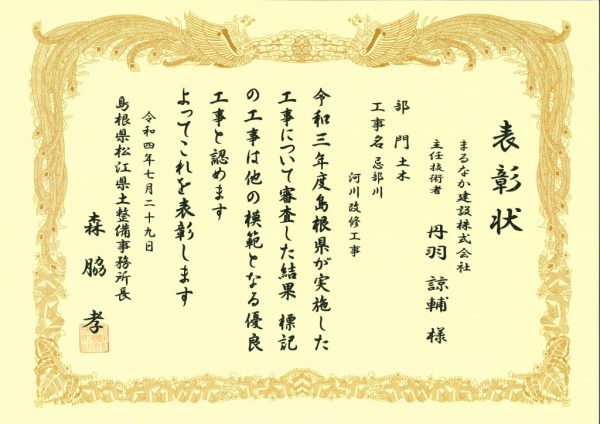 表彰状
まるなか建設株式会社
主任技術者
丹羽 諒輔 様
部 門 土木
工事名 忌部川
河川改修工事
令和三年度島根県が実施した
工事について審査した結果 標記
の工事は他の模範となる優良
工事と認めます
よってこれを表彰します
令和四年七月二十九日
島根県松江県土整備事務所長
森 脇 孝